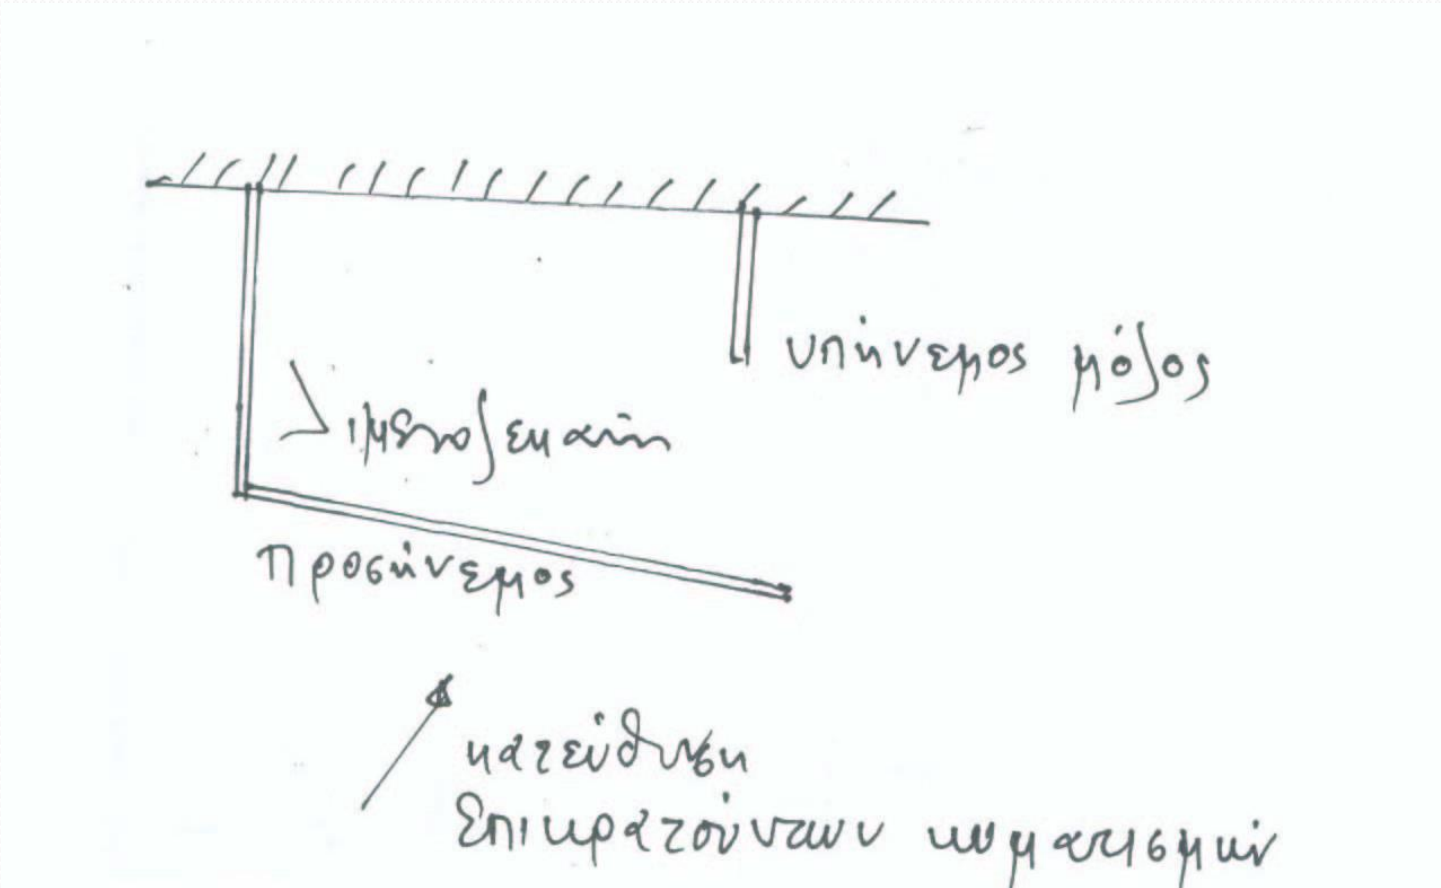 υπήνεμος μόλος
Λιμενολεκάνη
προσήνεμος
κατεύθυνση
επικρατούντων κυματισμών